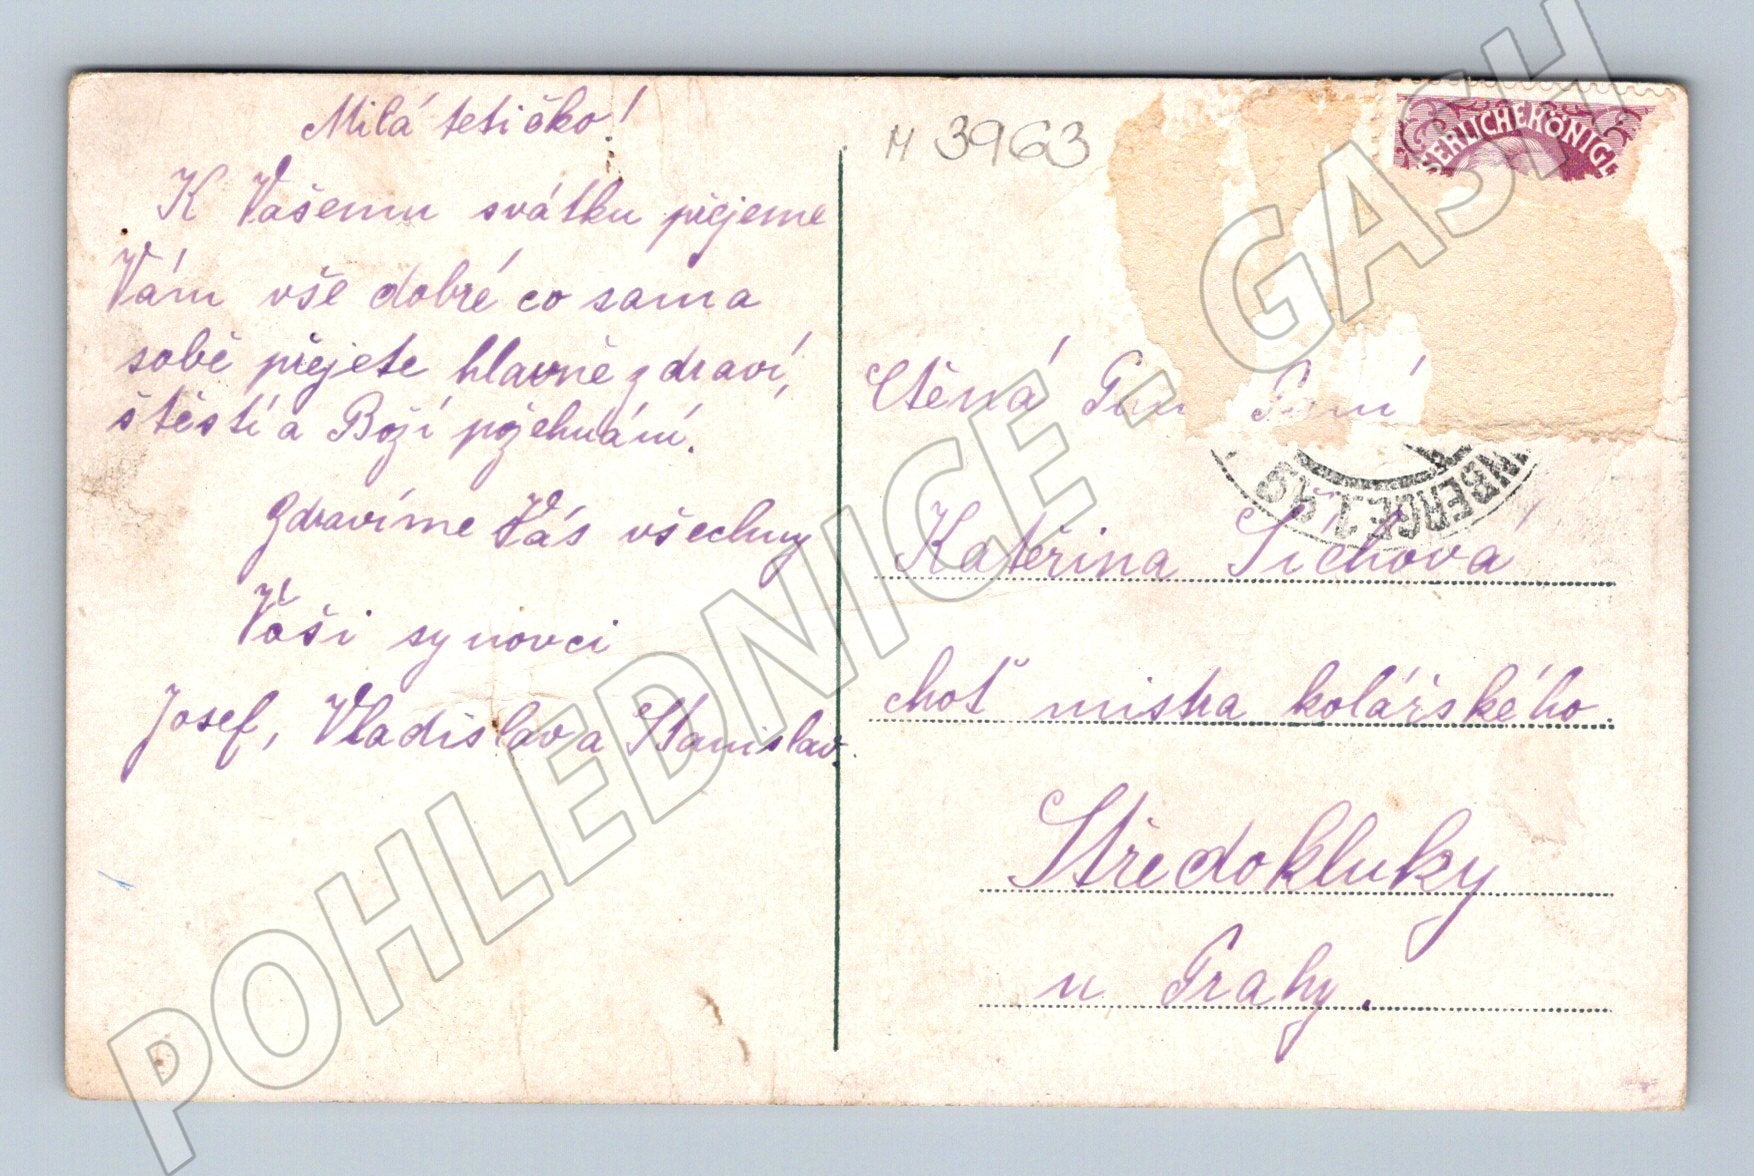 Milá tetičko!
K Vašemu svátku přejeme
Vám vše dobré co sama
sobě přejete hlavně zdraví,
štěstí a Boží požehnání.
Zdravíme Vás všechny
Vaši synovci
Josef, Vladislav a Stanislav.
M 3963
ERLICHEKÖNIGL
Ctěná Paní
NBERGE.1
Kateřina Šíchová
choť mistra kolářského
Středokluky
u Prahy.
POHLEDNICE - GASH